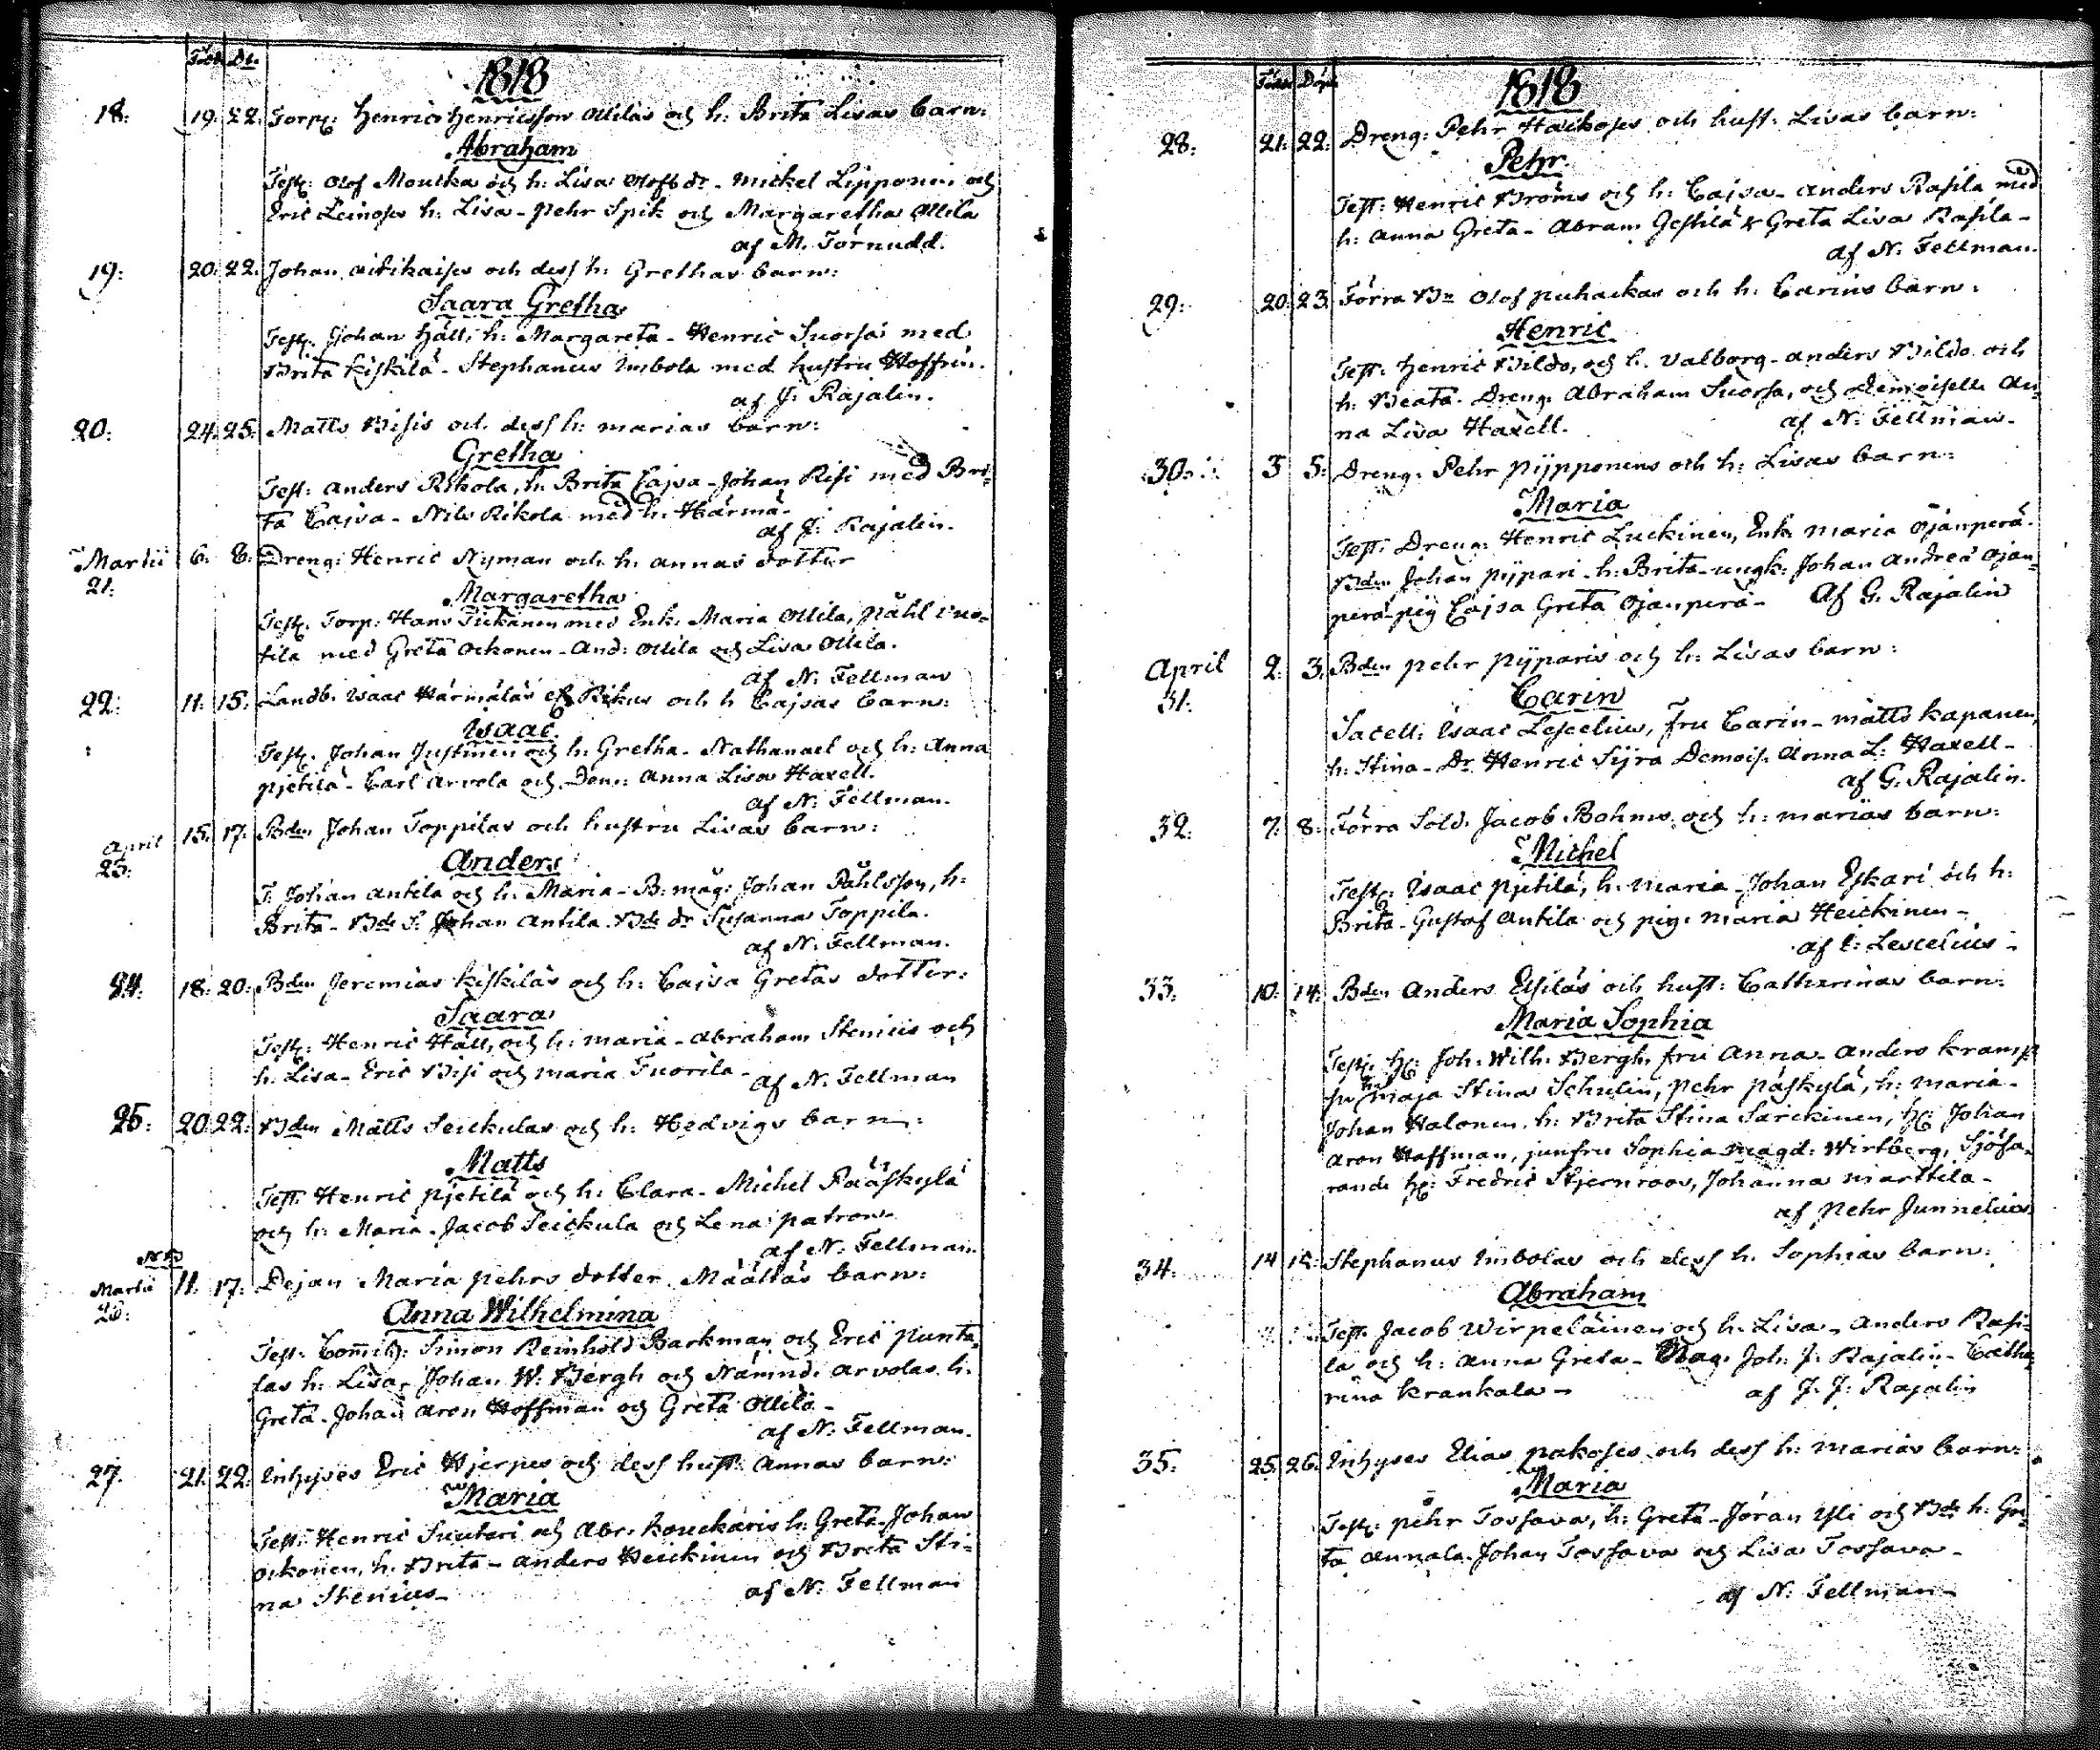 Född Dt.
1818
18: 19: 22: Torp: Henric Henricsson Ollilas och h: Brita Lisas barn:
Abraham
Test: Olof Moucka och h: Lisa Olofs dr - Mickel Lipponen och
Eric Leinoses h: Lisa - Pehr Spik och Margaretha Ollila
af M. Törnudd.
19: 20: 22: Johan och dess h: Grethas barn:
Saara Gretha
Test: Johan Hält, h: Margareta - Henric Suorsa med
Brita Kiskilä - Stephanus Imbola med hustru Hoffrén.
af J: Rajalin.
20: 24: 25: Matts Bisis och dess h: Marias barn:
Gretha
Test: Anders Rikola, h: Brita Cajsa - Johan Risi med Bri-
ta Cajsa - Nils Rikola med h: Härmä -
af J: Rajalin.
Martii 6: 8: Dreng: Henric Nyman och h: Annas dotter
21:
Margaretha
Test: Torp: Hans med Enk: Maria Ollila, Påhl
tila med Greta Ockonen - And: Ollila och Lisa Ollila.
af N: Fellman
22: 11: 15: Landb. Isaac Härmäläs Rikus och h Cajsas barn:
Isaac
Test: Johan Justinen och h: Gretha - Nathanael och h: Anna
Pjetilä - Carl Arvola och Dem: Anna Lisa Haxell.
af N: Fellman.
April 15: 17: Bden Johan Toppilas och hustru Lisas barn:
23:
Anders
T. Johan Antila och h: Maria - B: måg: Johan Påhlsson, h:
Brita - Bds S: Johan Antila Bds dr Susanna Toppila.
af N: Fellman.
24: 18: 20: Bden Jeremias Kiskiläs och h: Cajsa Gretas dotter:
Saara
Test: Henric Hält, och h: Maria - Abraham Stenius och
h: Lisa - Eric Bisi och Maria Tuorila -
af N: Fellman
25: 20: 22: Bden Matts Seickulas och h: Hedvigs barn:
Matts
Test: Henric Pjetilä och h: Clara - Michel Pääskylä
och h: Maria - Jacob Seickula och Lena Patron -
af N: Fellman.
Martii 11: 17: Dejan Maria Pehrs dotter Määttäs barn:
26:
Anna Wilhelmina
Test: Simon Reinhold Barkman och Eric Punta-
las h: Lisa - Johan W: Bergh och Nämnd: Arvolas h:
Greta - Johan Aron Hoffman och Greta Ollila -
af N: Fellman.
27. 21: 22: Inhyses Eric Hjerpes och dess hust: Annas barn:
Maria
Test: Henric Suutari och Abr: Kouckaris h: Greta - Johan
Ockonen, h: Brita - Anders Heickinen och Brita Sti-
na Stenius -
af N: Fellman
Född Döpt
1818
28: 21: 22: Dreng: Pehr Haickoses och hust: Lisas barn:
Pehr
Test: Henric Bröms och h: Cajsa - Anders Rasila med
h: Anna Greta - Abram Jestilä & Greta Lisa Rasila -
af N: Fellman.
29: 20: 23: Förra Bn Olof Puhackas och h: Carins barn:
Henric
Test: Henric Bildo, och h: Valborg - Anders Bildo och
h: Beata - Dreng: Abraham Suorsa, och Demoiselle An-
na Lisa Haxell.
af N: Fellman.
30: 3 5: Dreng: Pehr Pijpponens och h: Lisas barn:
Maria
Test: Dreng: Henric Luckinen, Enk. Maria Ojanperä -
Bden Johan Pijpari - h: Brita - ungk: Johan Andreä Ojan-
perä - pig Cajsa Greta Ojanperä -
Af G: Rajalin
April 2: 3: Bden Pehr Pijparis och h: Lisas barn:
31:
Carin
Sacell: Isaac Lescelius, Fru Carin - Matts Kapanen,
h: Stina - Dr Henric Sijra Demois: Anna L: Haxell -
af G: Rajalin.
32: 7: 8: Förra Sold. Jacob Bohms och h: Marias barn:
Michel
Test: Isaac Pjetilä, h: Maria - Johan Eskari och h:
Brita - Gustaf Antila och pig: Maria Heickinen -
af I: Lescelius -
33: 10: 14: Bden Anders Elsiläs och hust: Catharinas barn:
Maria Sophia
Test: Joh: Wilh: Bergh, fru Anna - Anders Kramp
Maja Stina Schulin, Pehr Päskylä, h: Maria -
Johan Halonen, h: Brita Stina Sarckinen, Johan
Aron Hoffman, jungfru Sophia Magd: Wirtberg, Sjöfa-
rande Fredric Stjernroos, Johanna Marttila -
af Pehr Junnelius
34: 14 15: Stephanus Imbolas och dess h: Sophias barn:
Abraham
Test: Jacob Wirpeläinen och h: Lisa - Anders Rasi-
la och h: Anna Greta - Mag: Joh: J: Rajalin - Catha-
rina Krankala -
af J. J: Rajalin
35: 25: 26: Inhyses Elias Pakoses och dess h: Marias barn:
Maria
Test: Pehr Tossava, h: Greta - Jöran Yli och Bds h: Gre-
ta Annala - Johan Tossava och Lisa Tossava -
af N: Fellman -